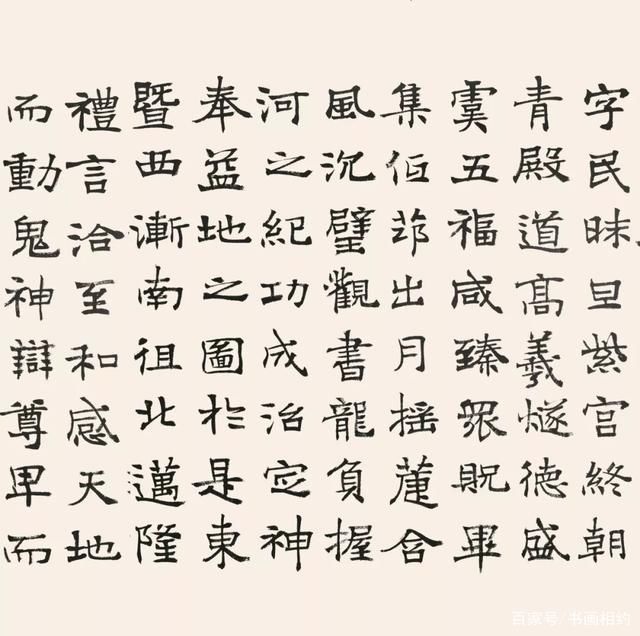 字民昧旦紫宮終朝
青殿道高羲燧德盛
虞五福咸臻眾貺畢
集出月搖含
風沉璧觀書龍負握
河之紀功成治定神
奉益地之圖於是東
暨西漸南徂北邁隆
禮言洽至和感天地
而動鬼神辯尊卑而
百家号/书画相约